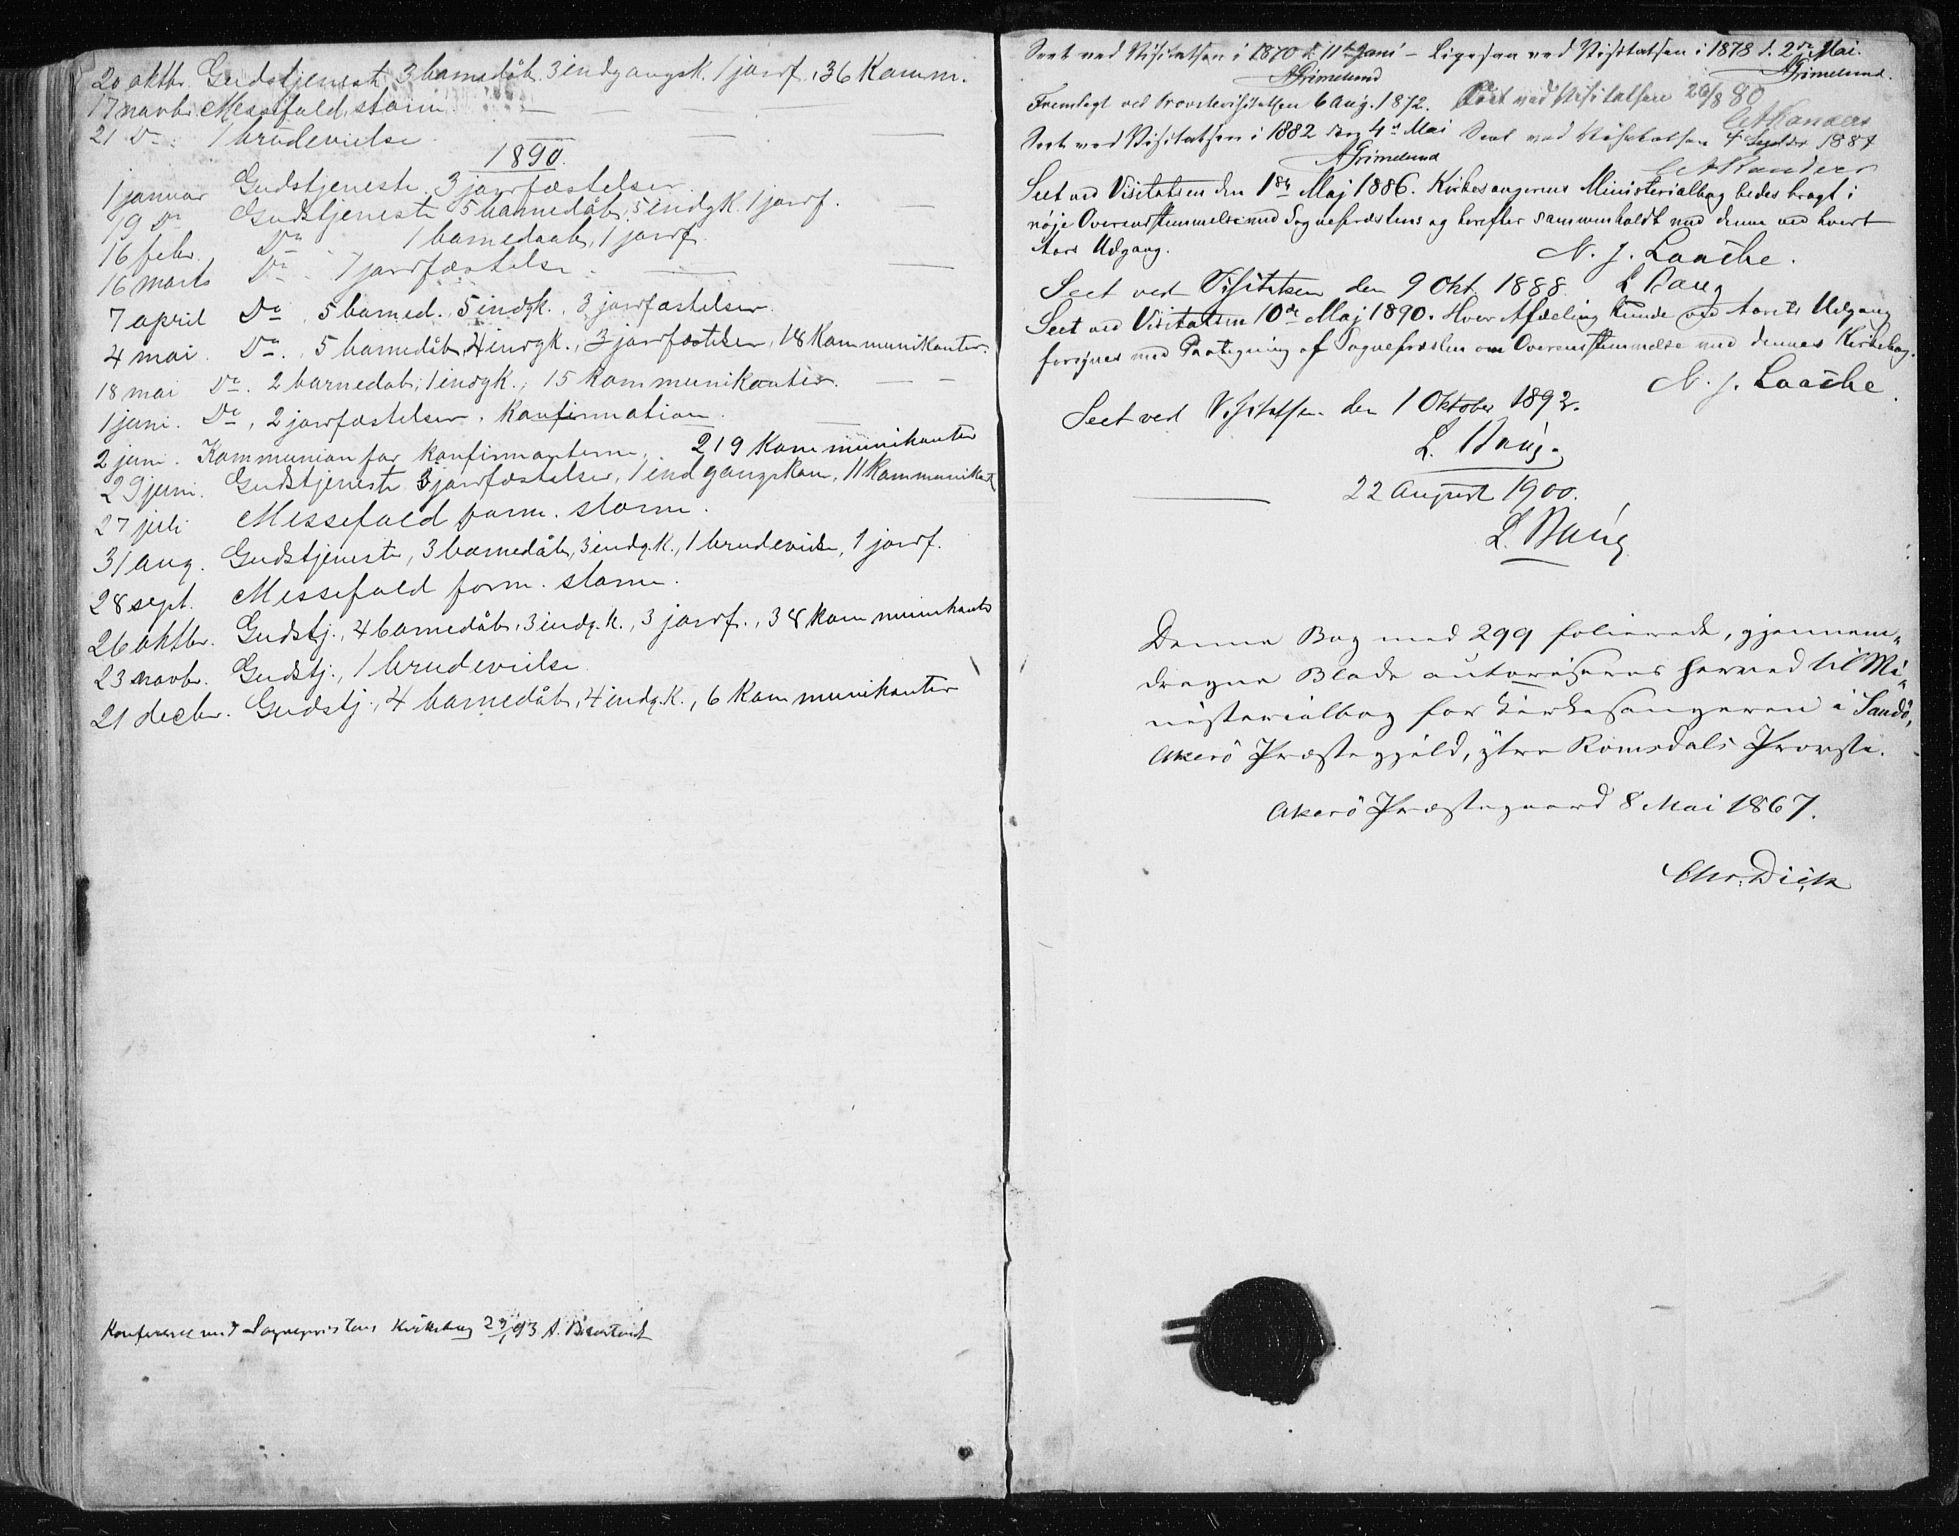 20 oktbr. Gudstjeneste 3 barnedåb, 3 indgangsk. 1 jordf. 36 Komm.
17 novbr. Messefald, storm
21 Do 1 brudevielse
1890.
1 januar Gudstjeneste. 3 jordfæstelser.
19 Do Gudstjeneste 5 barnedåb, 5 indgk. 1 jordf.
16 febr. Do 1 barnedaab, 1 jordf.
16 marts Do 1 jordfæstelse.
7 april Do, 5 barned. 5 indgk., 3 jordfæstelser.
4 mai. Do., 5 barnedåb, 4 indgk., 3 jordfæstelser, 18 Kommunikanter.
18 mai Do. 2 barnedåb, 1 indgk., 15 kommunikanter.
1 juni. Do, 2 jordfæstelser. Konfirmation.
2 juni. Kommunion for konfirmanterne. 219 Kommunikanter
29 juni. Gudstjeneste 3 jordfæstelser, 1 indgangskon, 11 Kommunikant
27 juli Messefald form. storm.
31 aug. Gudstjeneste, 3 barnedåb, 3 indg.K., 1 brudevielse, 1 jordf.
28 sept. Messefald form. storm.
26 oktbr. Gudstj., 4 barnedåb, 3 indg.k., 3 jordf., 38 kommunikanter
23 novbr. Gudstj., 1 brudevielse.
21 decbr. Gudstj., 4 barnedåb, 4 indg.K., 6 Kommunikanter
Konfereret med Sogneprestens Kirkebog 93 A.
Seet ved Visitatsen i 1870 d. 11te Juni – Ligesaa ved Visitatsen i 1878 d. 2den Mai.
AGrimelund AGrimelund.
Fremlagt ved Provstevisitatsen 6 Aug. 1872. Seet ved Visitatsen 26/8 80
Seet ved Visitatsen i 1882 den 4de Mai Seet ved Visitatsen 4 Septbr 1884
AGrimelund
Seet ved Visitatsen den 1ste Maj 1886. Kirkesangerens Ministerialbog bedes bragt i
nøje Overensstemmelse med Sognepræstens og herefter sammenholdt med denne ved hvert
Aars Udgang.
N. J. Laache.
Seet ved Visitatsen den 9 Okt. 1888. L Daug
Seet ved Visitatsen 10de Maj 1890. Hver Afdeling kunde ved Aarets Udgang
forsynes med Paategning af Sognepræsten om Overensstemmelse med dennes Kirkebog.
N. J. Laache.
Seet ved Visitatsen den 1 Oktober 1892.
L. Daug.
22 August 1900.
L. Daug
Denne Bog med 299 folierede, gjennem-
dragne Blade autoriseres herved til Mi-
nisterialbog for Kirkesangeren i Sandø,
Akerö Præstegjeld, ytre Romsdals Provsti.
Akerö Præstegaard 8 Mai 1867.
Chr. Dick